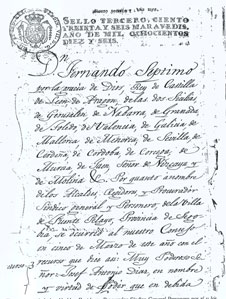 SELLO TERCERO, CIENTO
TREINTA Y SEIS MARAVEDIS,
AÑO DE MIL OCHOCIENTOS
DIEZ Y SEIS.
Don Fernando Septimo
por la gracia de Dios, Rey de Castilla
de Leon, de Aragon, de las dos Sicilias
de Jerusalén, de Navarra, de Granada,
de Toledo, de Valencia, de Galicia, de
Mallorca, de Menorca, de Sevilla, de
Cerdeña, de Cordoba, de Corcega, de
Murcia, de Jaen, Señor de Vizcaya y
de Molina &. Por quanto a nombre
de los Alcaldes, Regidores, y Procurador
Sindico general y Personero, de la Villa
de Puente Pelayo, Provincia de
se ocurrió al nuestro Consejo
en cinco de Marzo de este año en el
recurso que dice asi: Muy Poderoso
Señor: Josef Antonio Diaz, en nombre
y virtud de Poder que en debida